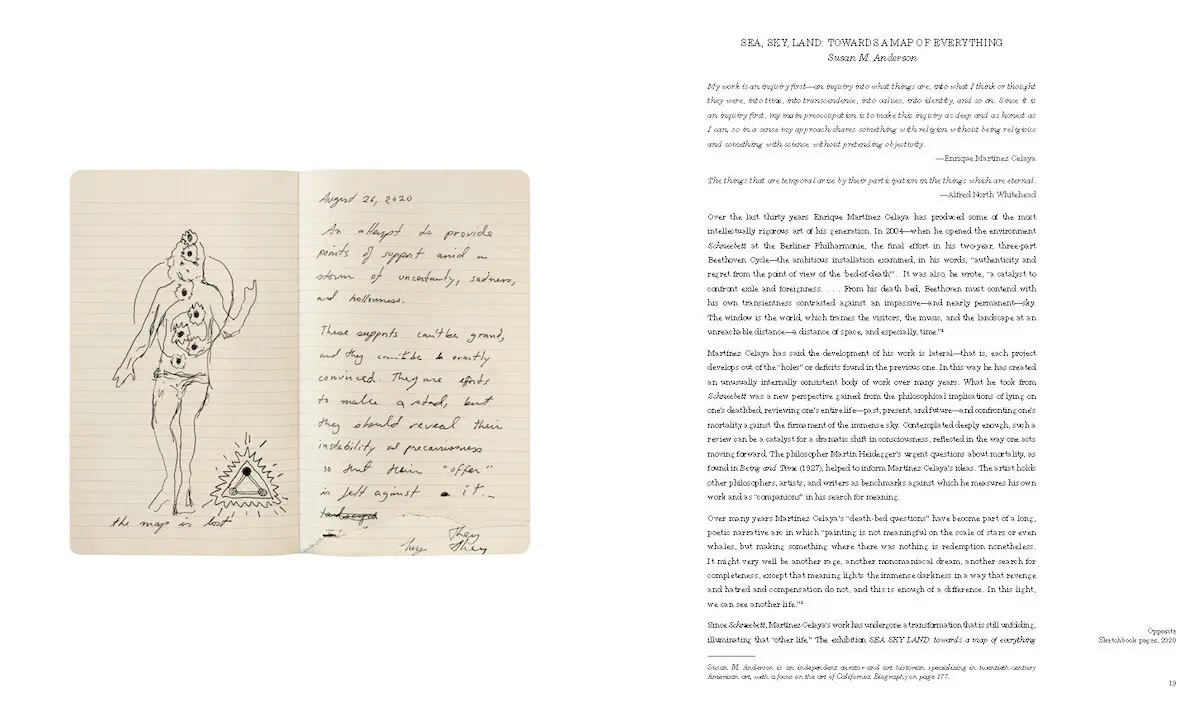 August 26, 2020
An attempt to provide
points of support amid a
storm of uncertainty, sadness,
and hollowness.
These supports can't be grand,
and they can't be overtly
convinced. They are efforts
to make a stand, but
they should reveal their
instability and precariousness
so that their "offer"
is felt against it.
They
they
the map is lost
SEA, SKY, LAND: TOWARDS A MAP OF EVERYTHING
Susan M. Anderson
My work is an inquiry first—an inquiry into what things are, into what I think or thought
they were, into time, into transcendence, into values, into identity, and so on. Since it is
an inquiry first, my main preoccupation is to make this inquiry as deep and as honest as
I can, so in a sense my approach shares something with religion without being religious
and something with science without pretending objectivity.
—Enrique Martínez Celaya
The things that are temporal arise by their participation in the things which are eternal.
—Alfred North Whitehead
Over the last thirty years Enrique Martínez Celaya has produced some of the most
intellectually rigorous art of his generation. In 2004—when he opened the environment
Schneebett at the Berliner Philharmonie, the final effort in his two-year, three-part
Beethoven Cycle—the ambitious installation examined, in his words, "authenticity and
regret from the point of view of the 'bed-of-death'". It was also, he wrote, "a catalyst to
confront exile and foreignness. . . . From his death bed, Beethoven must contend with
his own transientness contrasted against an impassive—and nearly permanent—sky.
The window is the world, which frames the visitors, the music, and the landscape at an
unreachable distance—a distance of space, and especially, time."¹
Martínez Celaya has said the development of his work is lateral—that is, each project
develops out of the "holes" or deficits found in the previous one. In this way he has created
an unusually internally consistent body of work over many years. What he took from
Schneebett was a new perspective gained from the philosophical implications of lying on
one's deathbed, reviewing one's entire life—past, present, and future—and confronting one's
mortality against the firmament of the immense sky. Contemplated deeply enough, such a
review can be a catalyst for a dramatic shift in consciousness, reflected in the way one acts
moving forward. The philosopher Martin Heidegger's urgent questions about mortality, as
found in Being and Time (1927), helped to inform Martínez Celaya's ideas. The artist holds
other philosophers, artists, and writers as benchmarks against which he measures his own
work and as "companions" in his search for meaning.
Over many years Martínez Celaya's "death-bed questions" have become part of a long,
poetic narrative arc in which "painting is not meaningful on the scale of stars or even
whales, but making something where there was nothing is redemption nonetheless.
It might very well be another rage, another monomaniacal dream, another search for
completeness, except that meaning lights the immense darkness in a way that revenge
and hatred and compensation do not, and this is enough of a difference. In this light,
we can see another life."²
Since Schneebett, Martínez Celaya's work has undergone a transformation that is still unfolding,
illuminating that "other life." The exhibition SEA SKY LAND: towards a map of everything
Susan M. Anderson is an independent curator and art historian specializing in twentieth-century
American art, with a focus on the art of California. Biography on page 177.
Opposite
Sketchbook pages, 2020
19